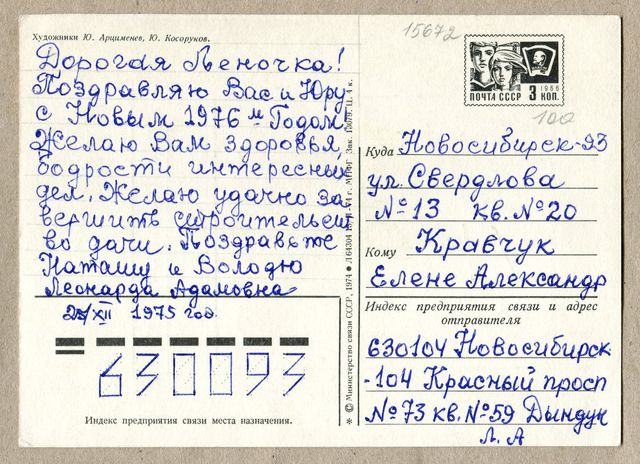 Художники Ю. Арцименев, Ю. Косоруков.
Дорогая Леночка!
Поздравляю Вас и Юру
с Новым 1976 м Годом
Желаю Вам здоровья,
бодрости интересных
дел. Желаю удачно за
вершить строительст
во дачи. Поздравьте
Наташу и Володю
Леонарда Адамовна
25/XII 1975 год.
630093
Индекс предприятия связи места назначения.
* © Министерство связи СССР. 1974 ● Л 64304
15672
ПОЧТА СССР 3 КОП.
1966
100
Куда Новосибирск-93
ул. Свердлова
№ 13 кв. № 20
Кому Кравчук
Елене Александр
Индекс предприятия связи и адрес
отправителя
630104 Новосибирск
-104 Красный просп
№ 73 кв. № 59 Дындун
Л. А